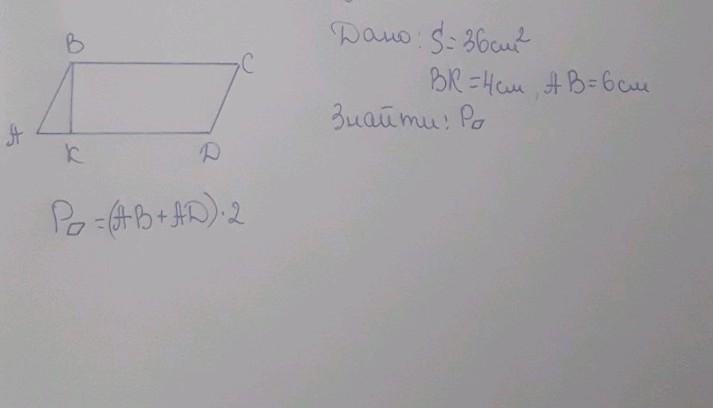 B
C
A
K
D
Дано: S=36см²
BK=4см, AB=6см
Знайти: P▱
P▱=(AB+AD)·2